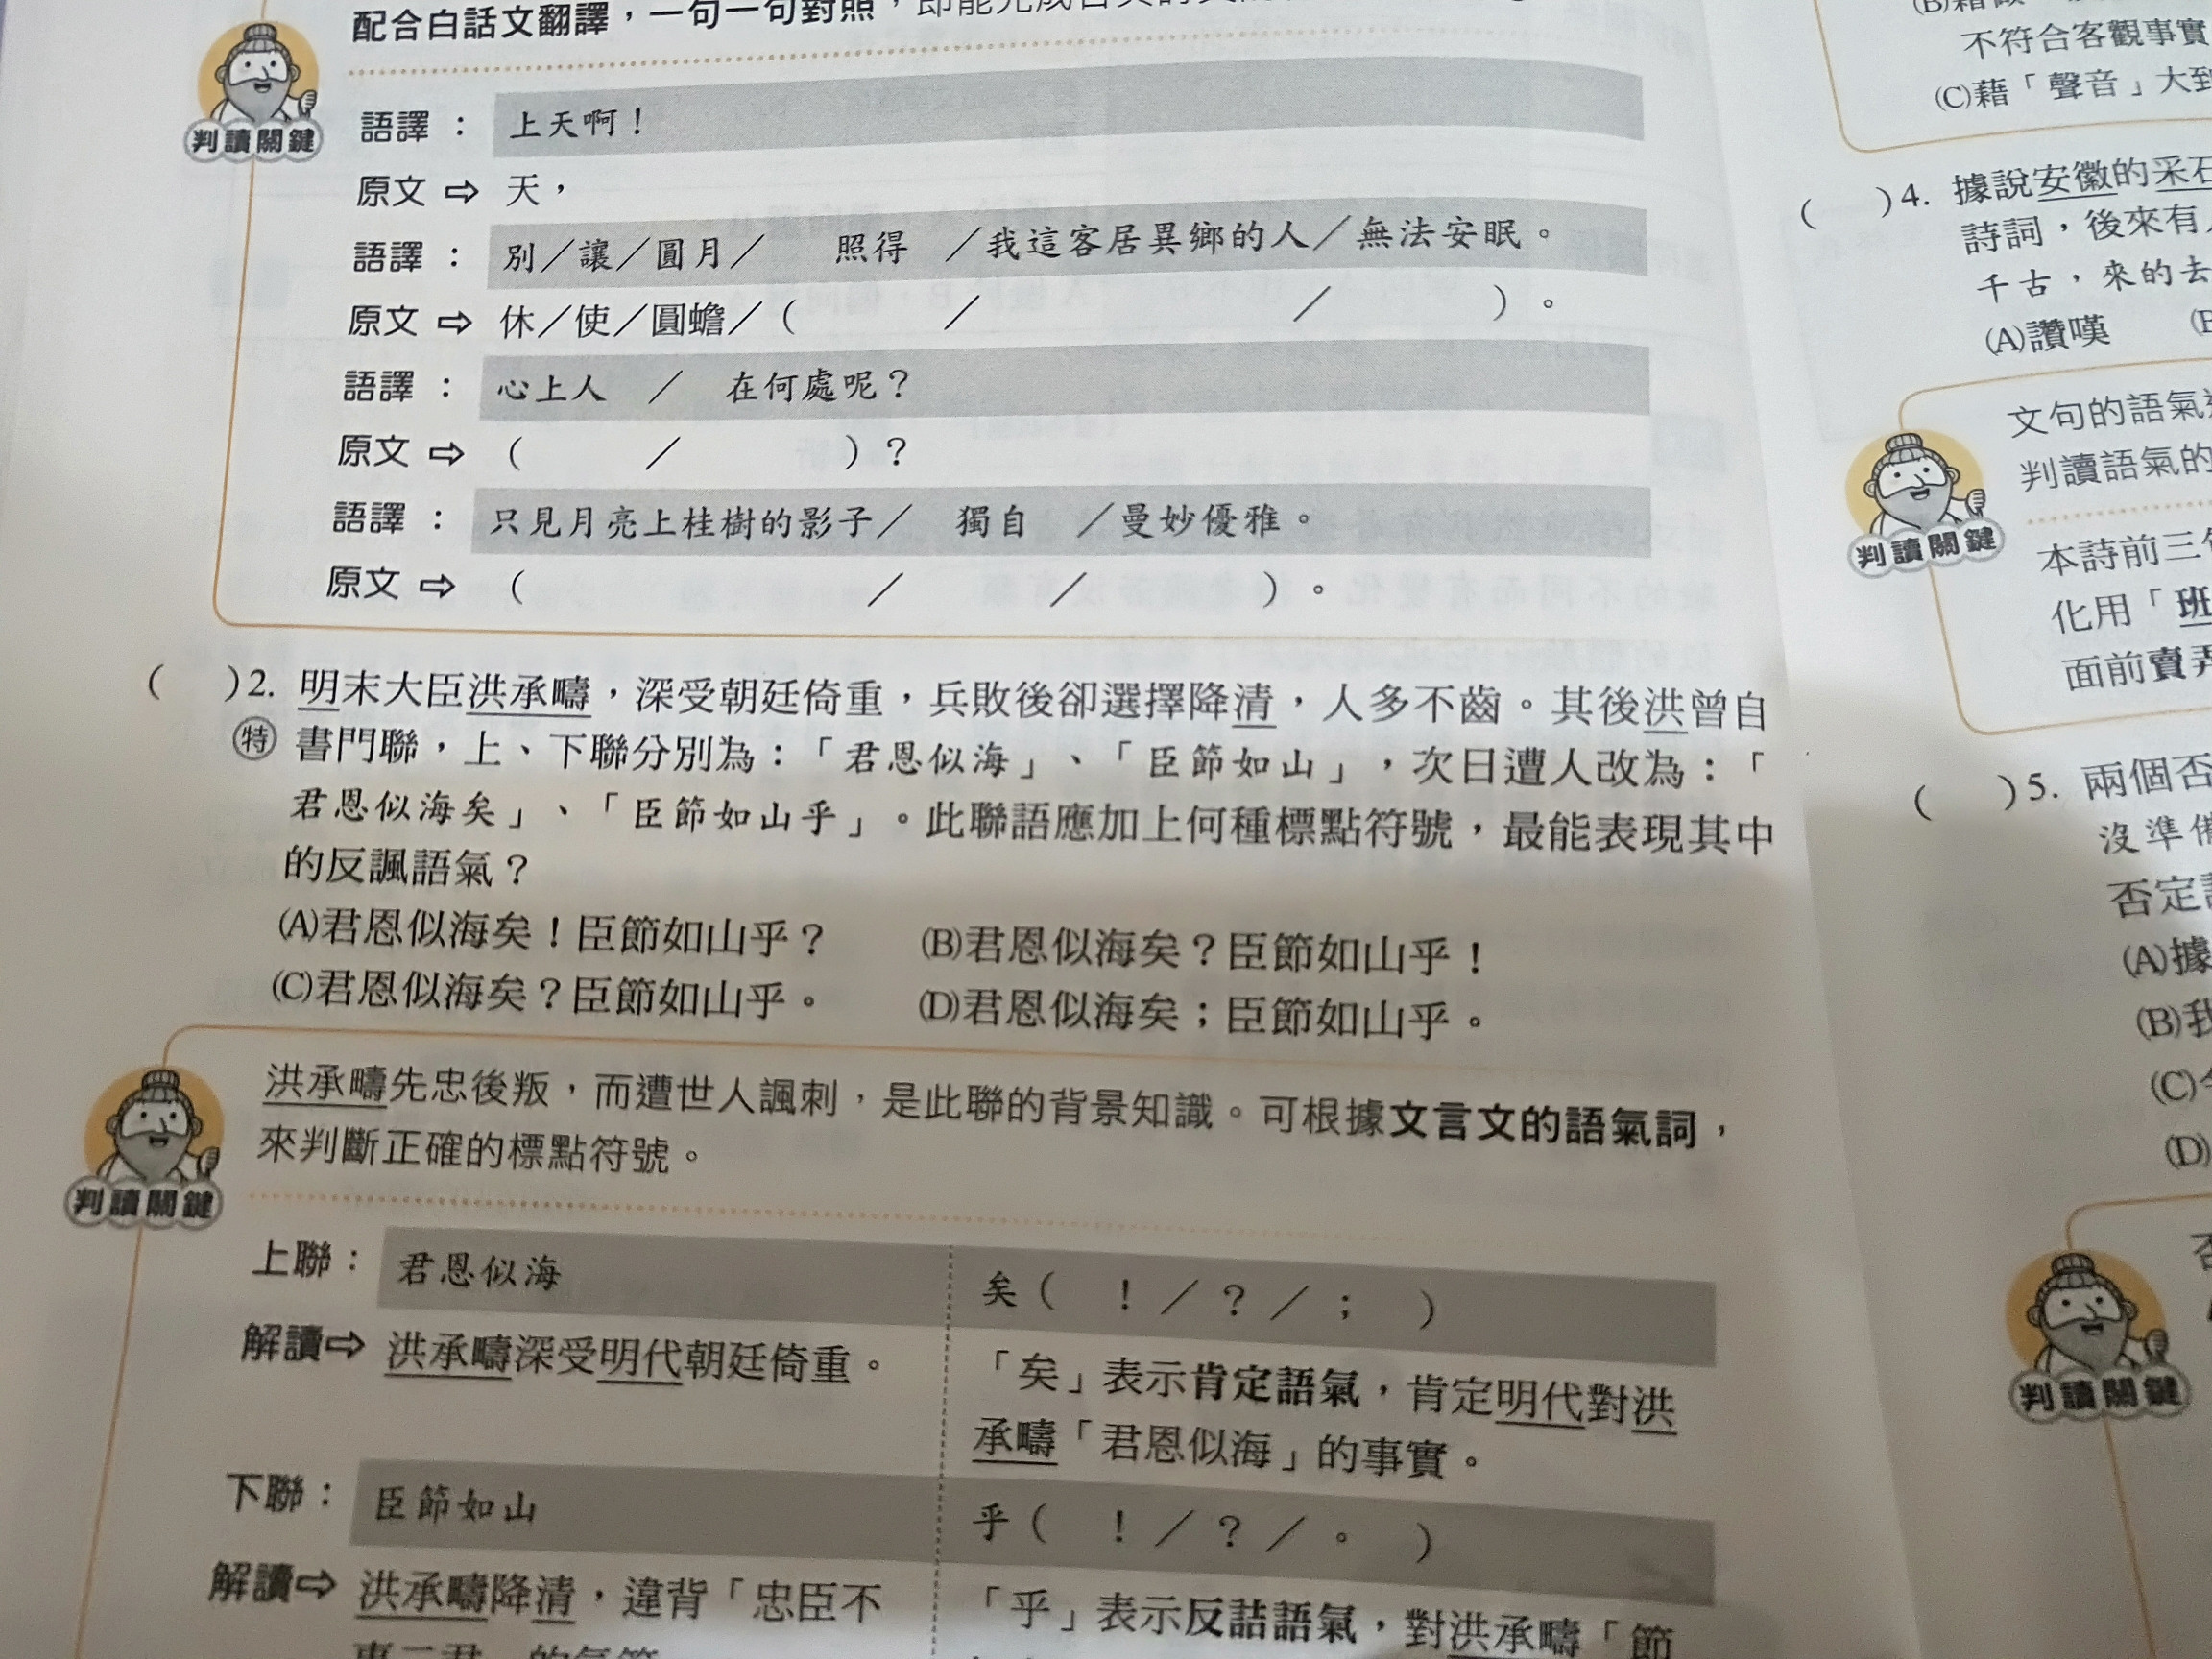 配合白話文翻譯，一句一句對照，即能完成
判讀關鍵
語譯：上天啊！
原文⇨天，
語譯：別／讓／圓月／　照得　／我這客居異鄉的人／無法安眠。
原文⇨休／使／圓蟾／（　　　／　　　　　／　　　）。
語譯：心上人　／　在何處呢？
原文⇨（　　　／　　　　）？
語譯：只見月亮上桂樹的影子／　獨自　／曼妙優雅。
原文⇨（　　　　　　　／　　　／　　　）。
（　）2. 明末大臣洪承疇，深受朝廷倚重，兵敗後卻選擇降清，人多不齒。其後洪曾自
特 書門聯，上、下聯分別為：「君恩似海」、「臣節如山」，次日遭人改為：「
君恩似海矣」、「臣節如山乎」。此聯語應加上何種標點符號，最能表現其中
的反諷語氣？
(A)君恩似海矣！臣節如山乎？　(B)君恩似海矣？臣節如山乎！
(C)君恩似海矣？臣節如山乎。　(D)君恩似海矣；臣節如山乎。
洪承疇先忠後叛，而遭世人諷刺，是此聯的背景知識。可根據文言文的語氣詞，
來判斷正確的標點符號。
判讀關鍵
上聯：君恩似海　矣（　！／？／；　）
解讀⇨洪承疇深受明代朝廷倚重。　「矣」表示肯定語氣，肯定明代對洪
承疇「君恩似海」的事實。
下聯：臣節如山　乎（　！／？／。　）
解讀⇨洪承疇降清，違背「忠臣不　「乎」表示反詰語氣，對洪承疇「節
不符合客觀事實
(C)藉「聲音」大到
（　）4. 據說安徽的采石
詩詞，後來有
千古，來的去
(A)讚嘆
文句的語氣
判讀語氣的
判讀關鍵
本詩前三句
化用「班
面前賣弄
（　）5. 兩個否
沒準備
否定
(A)據
(B)我
(C)
(D)
判讀關鍵